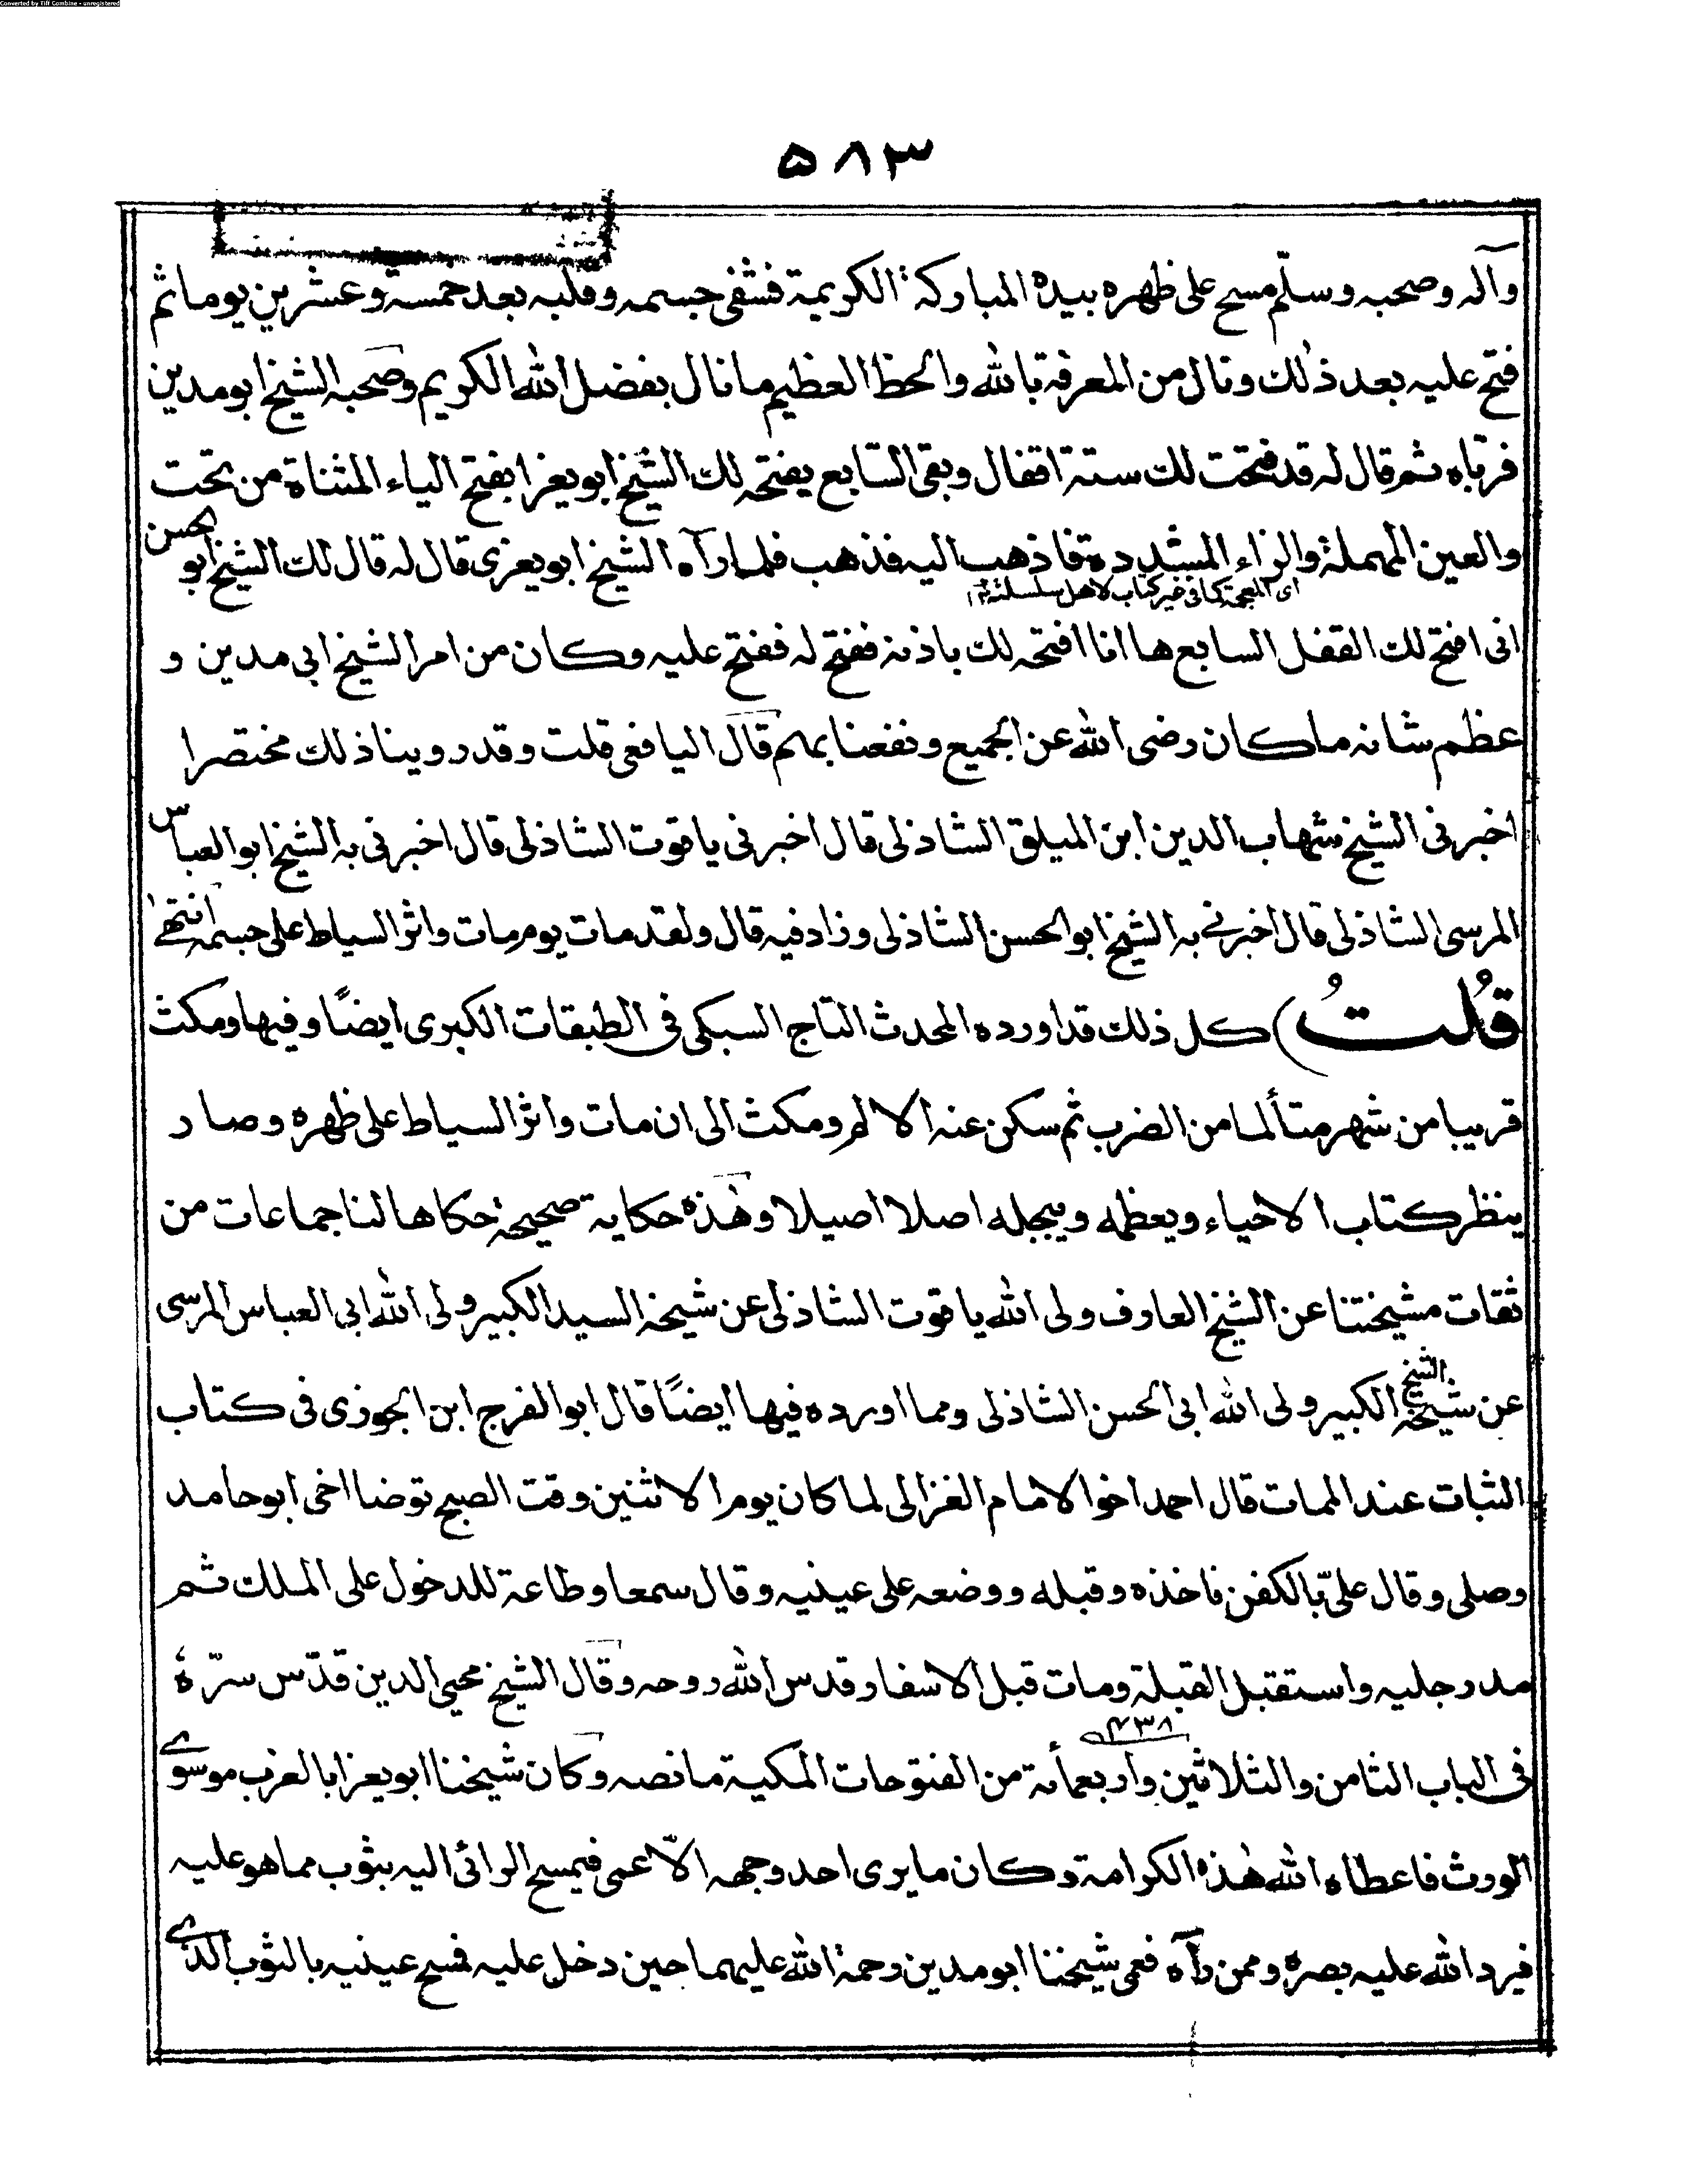 Converted by Tiff Combine - unregistered
۵۸۳
وآله وصحبه وسلّم مسح على ظهره بيده المباركة الكريمة فشفى جسمه وقلبه بعد خمسة وعشرين يوما ثم
فتح عليه بعد ذلك ونال من المعرفة بالله والحظ العظيم ما نال بفضل الله الكريم وصحبه الشيخ ابو مدين
فربّاه ثم قال له قد فتحت لك ستة اقفال وبقى السّابع يفتحه لك الشيخ ابو يعزا بفتح الياء المثناة من تحت
والعين المهملة والزاء المشددة فاذهب اليه فذهب فلما رآه الشيخ ابو يعزى قال له قال لك الشيخ ابو الحسن
اى المعجمة كما فى خير كتاب لاهل سلسلته ١٢
انى افتح لك القفل السابع ها انا افتحه لك باذنه ففتح له ففتح عليه وكان من امر الشيخ ابى مدين و
عظم شانه ما كان رضى الله عن الجميع ونفعنا بهم قال اليافعى قلت وقد روينا ذلك مختصرا
اخبرنى الشيخ شهاب الدين ابن الميلق الشاذلى قال اخبرنى ياقوت الشاذلى قال اخبرنى به الشيخ ابو العباس
المرسى الشاذلى قال اخبرنے به الشيخ ابو الحسن الشاذلى وزاد فيه قال ولقد مات يوم مات واثر السياط على جسمه انتهى
قُلتُ) كل ذلك قد اورده المحدث التاج السبكى فى الطبقات الكبرى ايضًا وفيها ومكث
قريبا من شهر متألما من الضرب ثم سكن عنه الالم ومكث الى ان مات واثر السياط على ظهره وصار
ينظر كتاب الاحياء ويعظمه ويبجله اصلا اصيلا وهذه حكاية صحيحة حكاها لنا جماعات من
ثقات مشيختنا عن الشيخ العارف ولى الله ياقوت الشاذلى عن شيخه السيد الكبير ولى الله ابى العباس المرسى
عن شيخه الشيخ الكبير ولى الله ابى الحسن الشاذلى ومما اورده فيها ايضًا قال ابو الفرج ابن الجوزى فى كتاب
الثبات عند الممات قال احمد اخوا لامام الغزالى لما كان يوم الاثنين وقت الصبح توضا اخى ابو حامد
وصلى وقال علىّ بالكفن فاخذه وقبله ووضعه على عينيه وقال سمعا وطاعة للدخول على الملك ثم
مد رجليه واستقبل القبلة ومات قبل الاسفار قدس الله روحه وقال الشيخ محيى الدين قدّس سرّهٗ
۴۳۸
فى الباب الثامن والثلاثين واربعمأئة من الفتوحات المكية ما نصه وكان شيخنا ابو يعزا بالغرب موسوے
الورث فاعطاه الله هذه الكرامة وكان ما يرى احد وجهه الّا عمى فيمسح الرائى اليه بثوب مما هو عليه
فيرد الله عليه بصره وممن رآه فعمى شيخنا ابو مدين رحمة الله عليهما حين دخل عليه فمسح عينيه بالثوب الذے